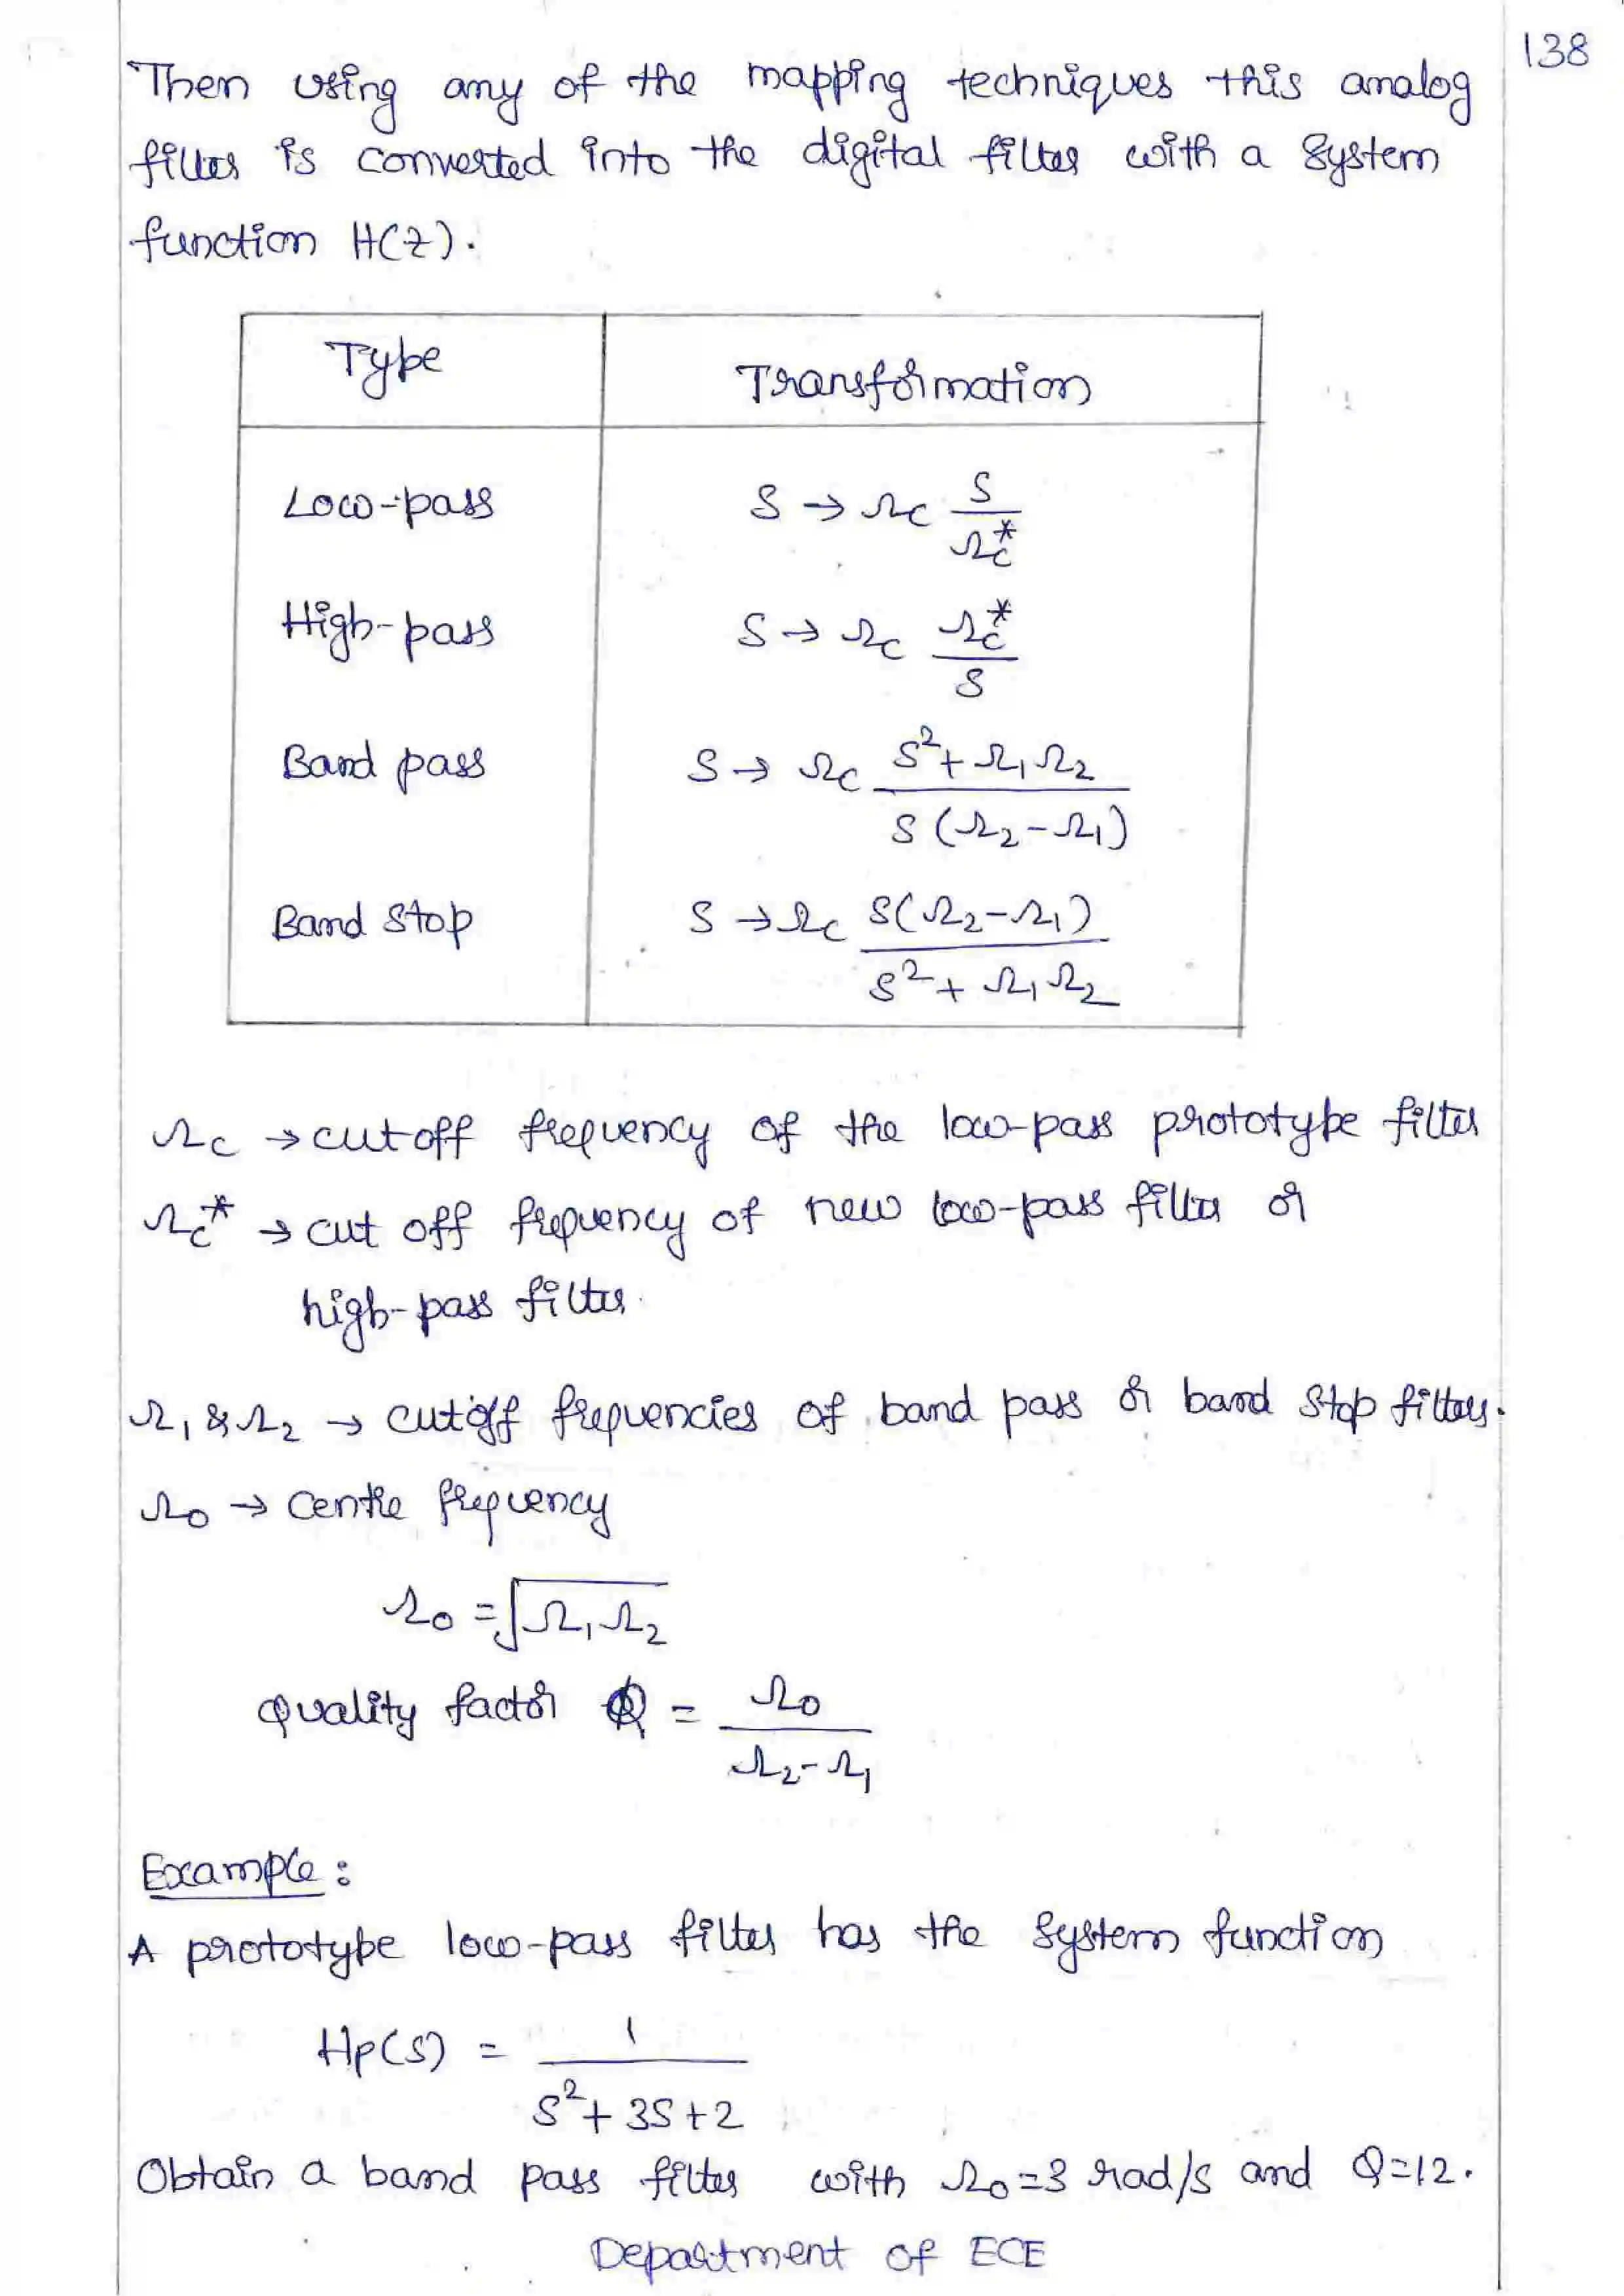 138
Then using any of the mapping techniques this analog
filter is converted into the digital filter with a system
function H(z).
Type Transformation
Low-pass S → Ωc S/Ωc*
High-pass S → Ωc Ωc*/S
Band pass S → Ωc (S² + Ω₁Ω₂)/(S(Ω₂-Ω₁))
Band stop S → Ωc S(Ω₂-Ω₁)/(S² + Ω₁Ω₂)
Ωc → cutoff frequency of the low-pass prototype filter
Ωc* → cut off frequency of new low-pass filter or
high-pass filter.
Ω₁ & Ω₂ → cutoff frequencies of band pass or band stop filters.
Ω₀ → Centre frequency
Ω₀ = √(Ω₁Ω₂)
Quality factor Q = Ω₀/(Ω₂-Ω₁)
Example :
A prototype low-pass filter has the system function
Hp(S) = 1/(S² + 3S + 2)
Obtain a band pass filter with Ω₀=3 rad/s and Q=12.
Department of ECE